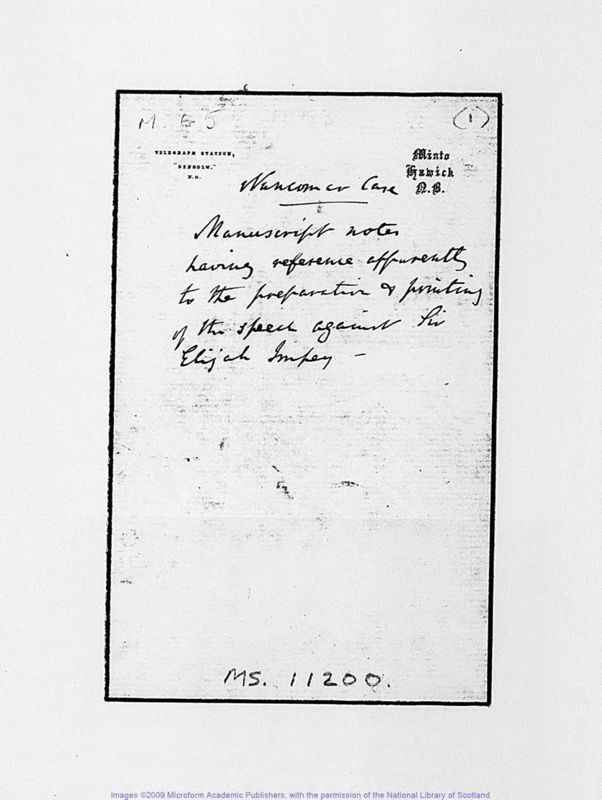 M 65
(1)
TELEGRAPH STATION,
"DENHOLM."
N.B.
Minto
Hawick
N.B.
Nuncomar Case
Manuscript notes
having reference apparently
to the preparation & printing
of the speech against Sir
Elijah Impey –
MS. 11200.
Images ©2009 Microform Academic Publishers, with the permission of the National Library of Scotland